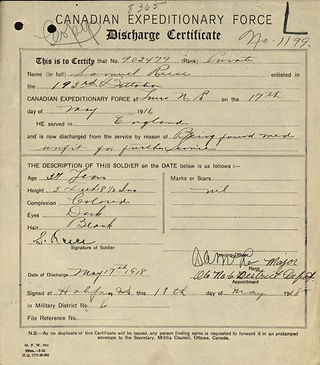 8365
Copy
CANADIAN EXPEDITIONARY FORCE
L
Discharge Certificate
No. 1199
This is to Certify that No. 902479 (Rank) Private
Name (in full) Samuel Reece enlisted in
the 193rd Battalion
CANADIAN EXPEDITIONARY FORCE at Truro N.S. on the 17th
day of May 1916
HE served in England
and is now discharged from the service by reason of Being found med
unfit for further service
THE DESCRIPTION OF THIS SOLDIER on the DATE below is as follows:—
Age 37 Years
Marks or Scars
Height 5 feet 8½ ins
nil
Complexion Colored
Eyes Dark
Hair Black
S. Reece
Signature of Soldier
Issuing Officer
Major
Rank
O/c No 6 District Depot
Date of Discharge May 17th 1918
Signed at Halifax NS this 17th day of May 1918
In Military District No. 6
File Reference No.
N.B.—As no duplicate of this Certificate will be issued, any person finding same is requested to forward it in an unstamped
envelope to the Secretary, Militia Council, Ottawa, Canada.